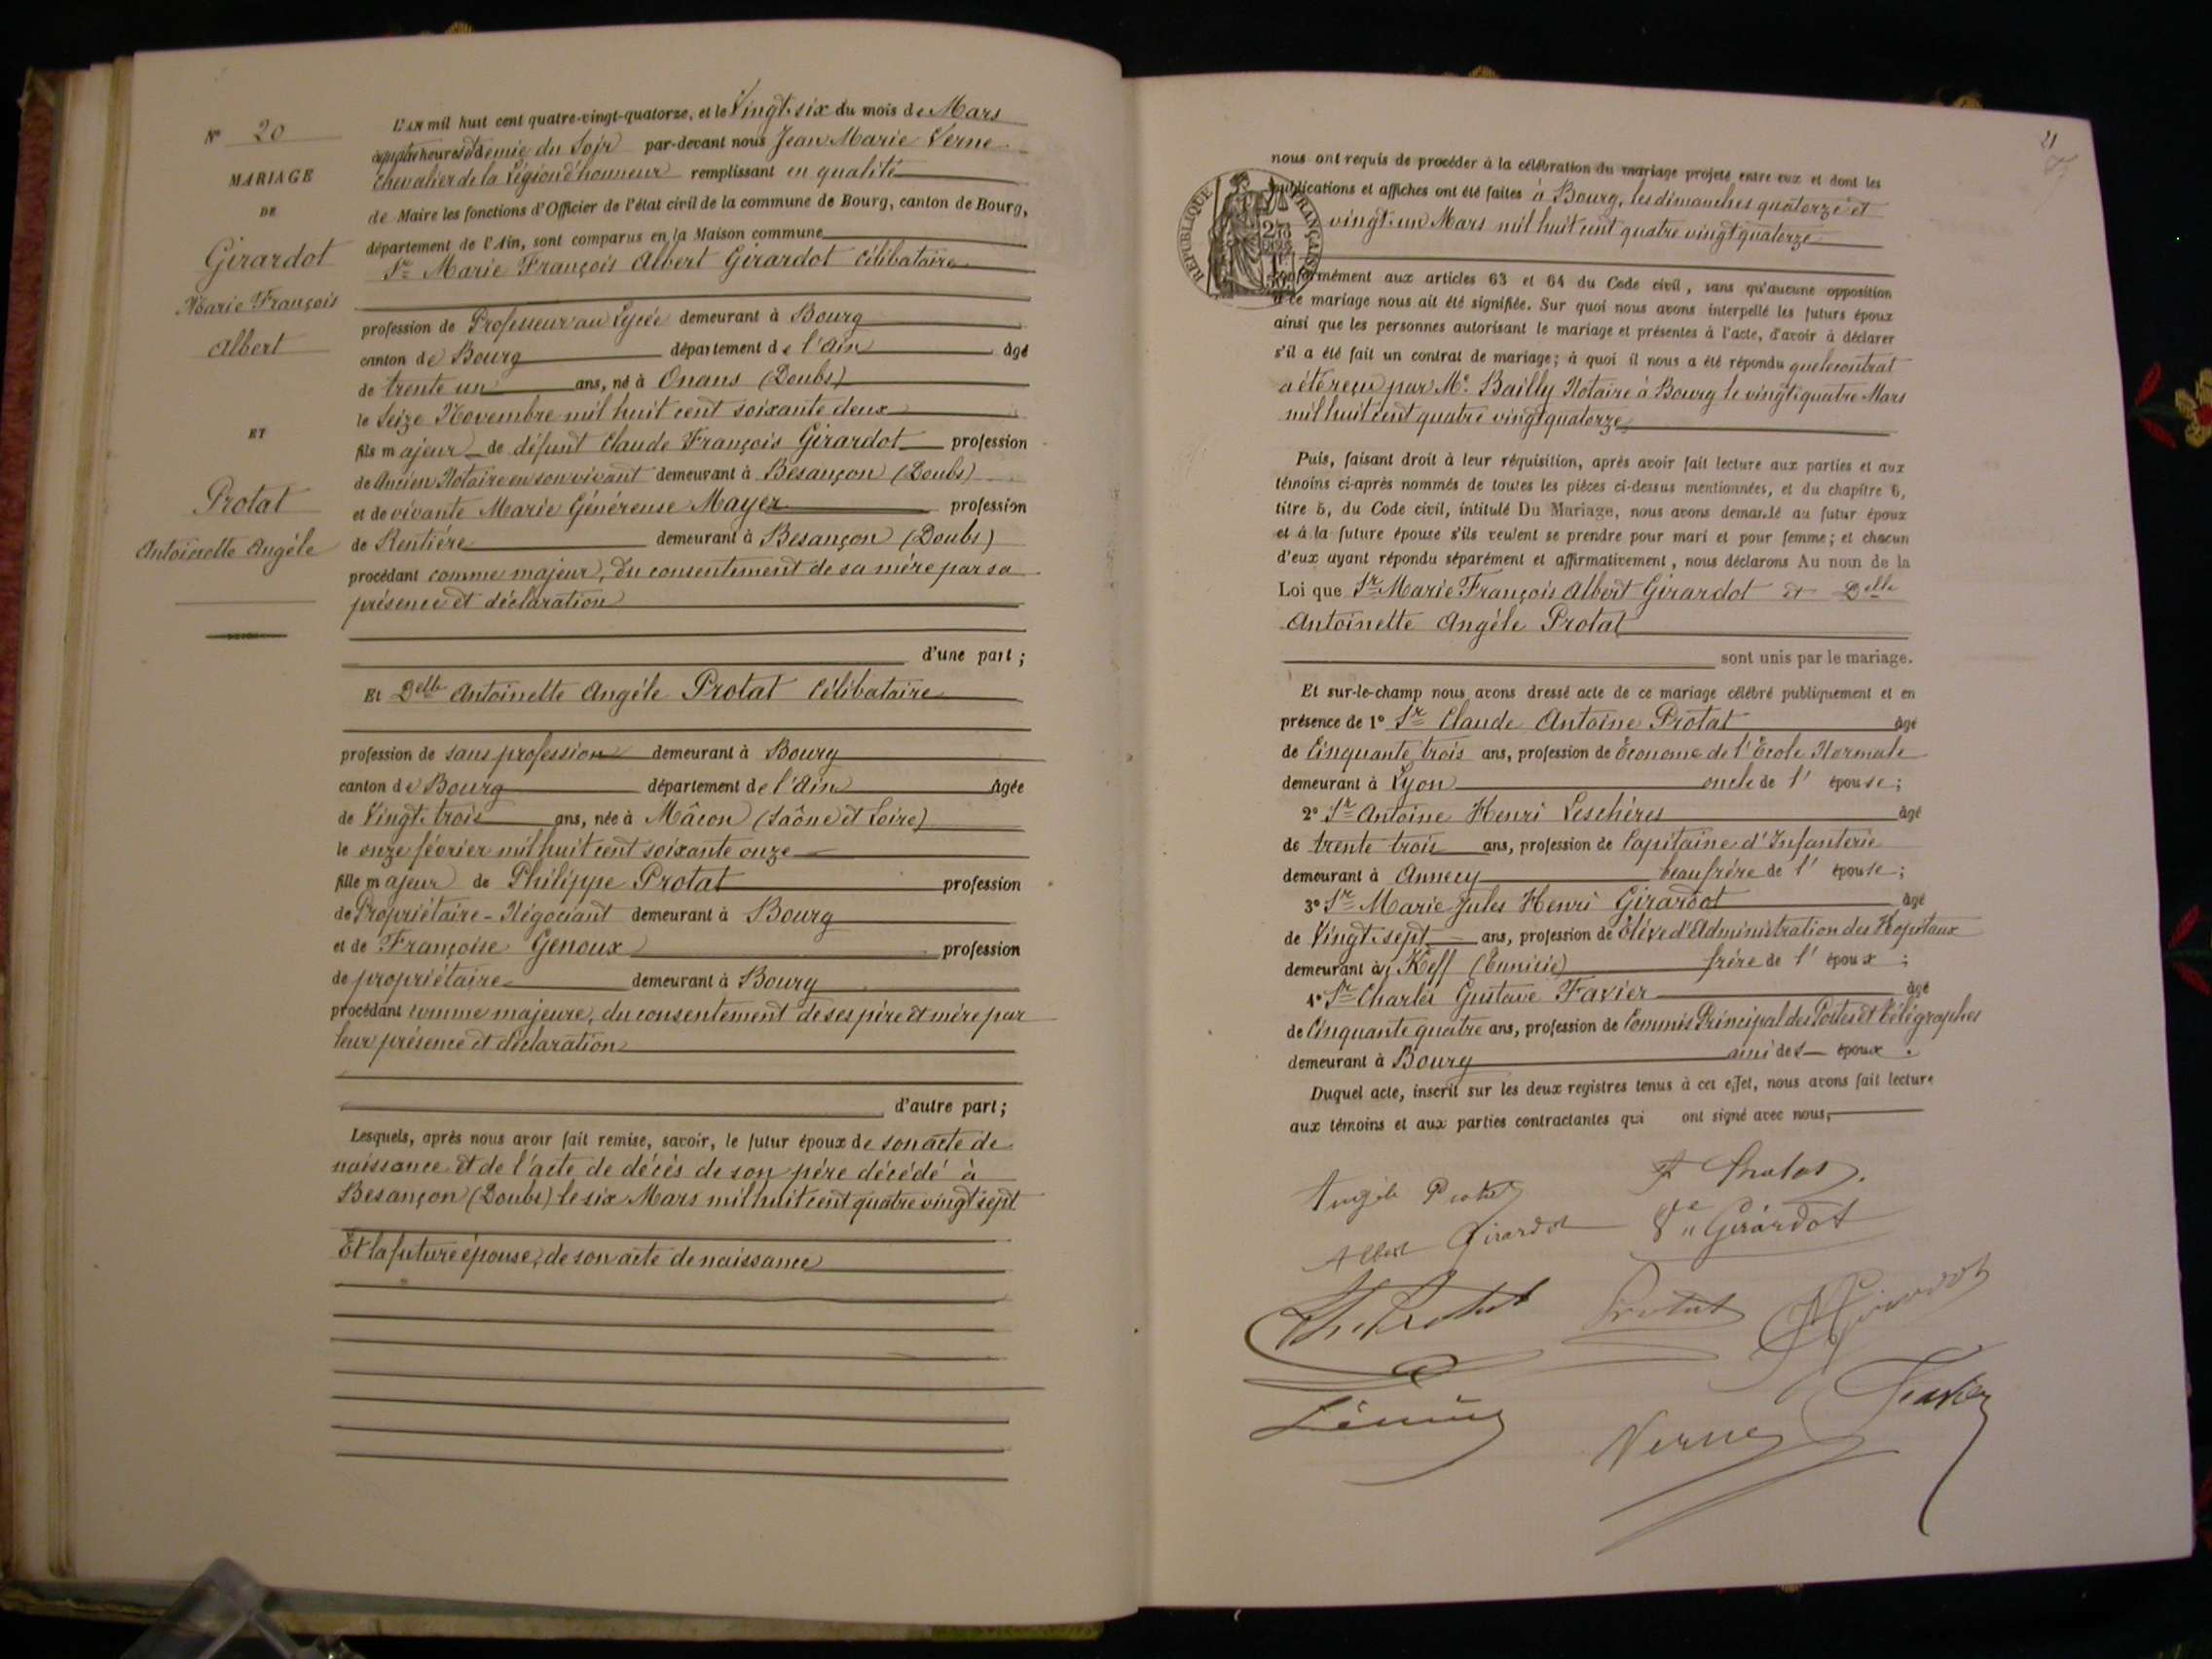 Nº 20
MARIAGE
DE
Girardot
Marie François
Albert
ET
Protat
Antoinette Angèle
L'AN mil huit cent quatre-vingt-quatorze, et le Vingt-six du mois de Mars
à quatre heures et demie du Soir par-devant nous Jean Marie Verne
Chevalier de la Légion d'honneur remplissant en qualité
de Maire les fonctions d'Officier de l'état civil de la commune de Bourg, canton de Bourg,
département de l'Ain, sont comparus en la Maison commune
Sr Marie François Albert Girardot Célibataire
profession de Professeur au Lycée demeurant à Bourg
canton de Bourg département de l'Ain âgé
de trente un ans, né à Onans (Doubs)
le Seize Novembre mil huit cent soixante deux
fils majeur de défunt Claude François Girardot profession
de Ancien Notaire en son vivant demeurant à Besançon (Doubs)
et de vivante Marie Généreuse Mayer profession
de Rentière demeurant à Besançon (Doubs)
procédant comme majeur, du consentement de sa mère par sa
présence et déclaration
d'une part ;
Et Delle Antoinette Angèle Protat Célibataire
profession de sans profession demeurant à Bourg
canton de Bourg département de l'Ain âgée
de Vingt-trois ans, née à Mâcon (Saône et Loire)
le onze février mil huit cent soixante onze
fille majeur de Philippe Protat profession
de Propriétaire-Négociant demeurant à Bourg
et de Françoise Genoux profession
de propriétaire demeurant à Bourg
procédant comme majeure, du consentement de ses père et mère par
leur présence et déclaration
d'autre part ;
Lesquels, après nous avoir fait remise, savoir, le futur époux de son acte de
naissance et de l'acte de décès de son père décédé à
Besançon (Doubs) le six Mars mil huit cent quatre vingt sept
Et la future épouse, de son acte de naissance
21
REPUBLIQUE FRANÇAISE
nous ont requis de procéder à la célébration du mariage projeté entre eux et dont les
publications et affiches ont été faites à Bourg, les dimanches quatorze et
vingt-un Mars mil huit cent quatre vingt quatorze
conformément aux articles 63 et 64 du Code civil, sans qu'aucune opposition
à ce mariage nous ait été signifiée. Sur quoi nous avons interpellé les futurs époux
ainsi que les personnes autorisant le mariage et présentes à l'acte, d'avoir à déclarer
s'il a été fait un contrat de mariage; à quoi il nous a été répondu que le contrat
a été reçu par Me. Bailly Notaire à Bourg le vingt-quatre Mars
mil huit cent quatre vingt quatorze
Puis, faisant droit à leur réquisition, après avoir fait lecture aux parties et aux
témoins ci-après nommés de toutes les pièces ci-dessus mentionnées, et du chapitre 6,
titre 5, du Code civil, intitulé Du Mariage, nous avons demandé au futur époux
et à la future épouse s'ils veulent se prendre pour mari et pour femme; et chacun
d'eux ayant répondu séparément et affirmativement, nous déclarons Au nom de la
Loi que Sr Marie François Albert Girardot et Delle
Antoinette Angèle Protat
sont unis par le mariage.
Et sur-le-champ nous avons dressé acte de ce mariage célébré publiquement et en
présence de 1º Sr Claude Antoine Protat âgé
de Cinquante trois ans, profession de Econome de l'Ecole Normale
demeurant à Lyon oncle de l' épouse ;
2º Sr Antoine Henri Leschères âgé
de trente trois ans, profession de Capitaine d'Infanterie
demeurant à Annecy beau frère de l' épouse ;
3º Sr Marie Jules Henri Girardot âgé
de Vingt-sept ans, profession de Elève d'Administration des Hopitaux
demeurant à Keff (Tunisie) frère de l' époux ;
4º Sr Charles Gustave Favier âgé
de Cinquante quatre ans, profession de Commis Principal des Postes et Télégraphes
demeurant à Bourg ami des époux .
Duquel acte, inscrit sur les deux registres tenus à cet effet, nous avons fait lecture
aux témoins et aux parties contractantes qui ont signé avec nous,
Angèle Protat
Albert Girardot Ve Girardot
Protat Girardot
Verne Favier